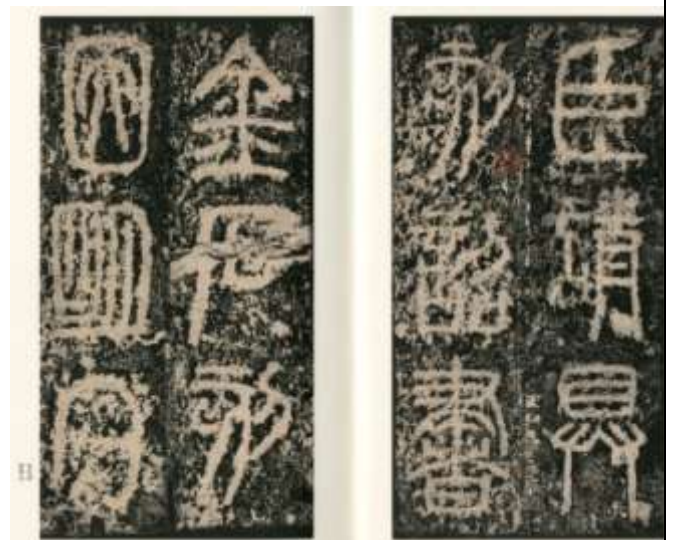 臣請具
刻詔書
金石刻
因明白